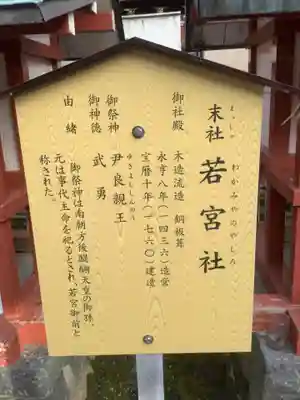 末社 若宮社
まっしゃ わかみやのやしろ
御社殿 木造流造 銅板葺
永亨八年(一四三六)造営
宝暦十年(一七六〇)建造
御祭神 尹良親王
ゆきよししんのう
御神徳 武勇
由緒
御祭神は南朝方後醍醐天皇の御孫。
元は事代主命を祀るとされ、若宮御前と
称された。